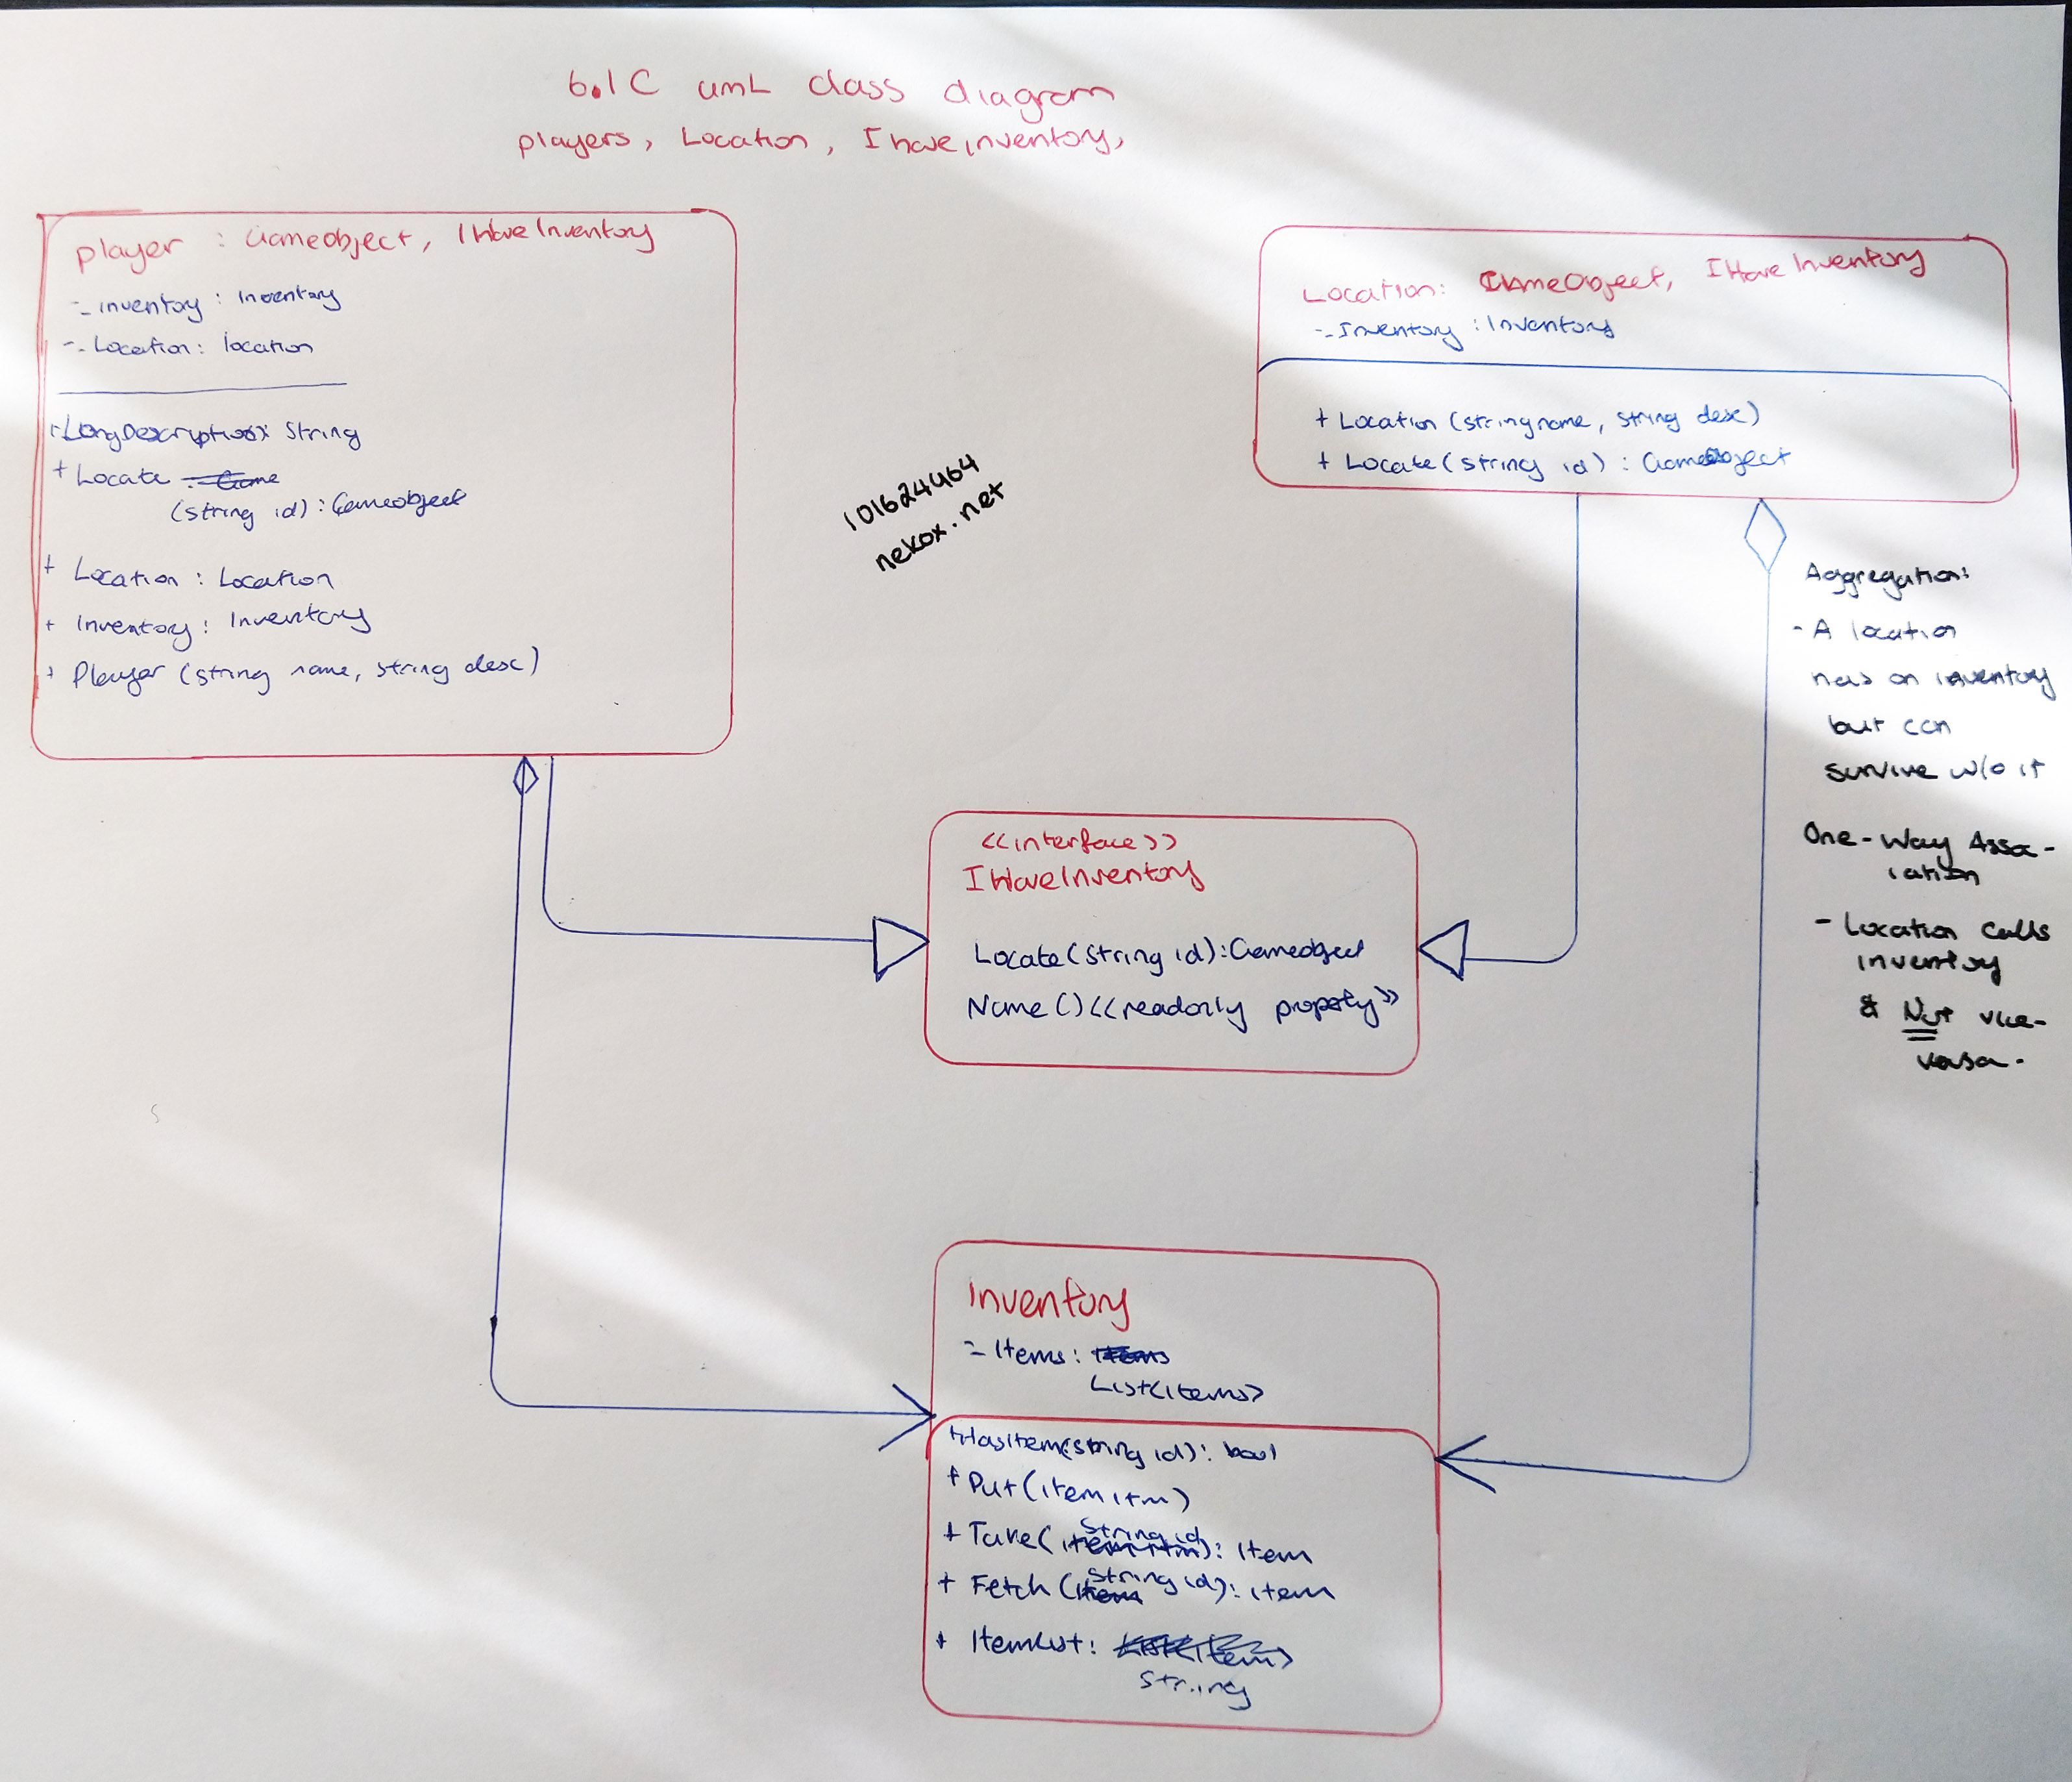 6.1C UML class diagram
players, Location, I have inventory,
player : Gameobject, IHaveInventory
-_inventory : Inventory
-_Location: location
+LongDescription: String
+ Locate
(string id) : Gameobject
+ Location : Location
+ Inventory : Inventory
+ Player (string name, string desc)
101624464
nekox.net
Location: GameObject, IHaveInventory
-_Inventory : Inventory
+ Location (string name, string desc)
+ Locate (string id) : GameObject
Aggregation:
- A location
has an inventory
but can
survive w/o it
One-Way Assoc-
iation
- Location calls
inventory
& Not vice-
versa.
<<interface>>
IHaveInventory
Locate(String id):Gameobject
Name()<<readonly property>>
Inventory
-_Items: Items
List<items>
+HasItem(string id): bool
+ Put(item itm)
+ Take(String id): Item
+ Fetch (String id): item
+ ItemList: List<Item>
String